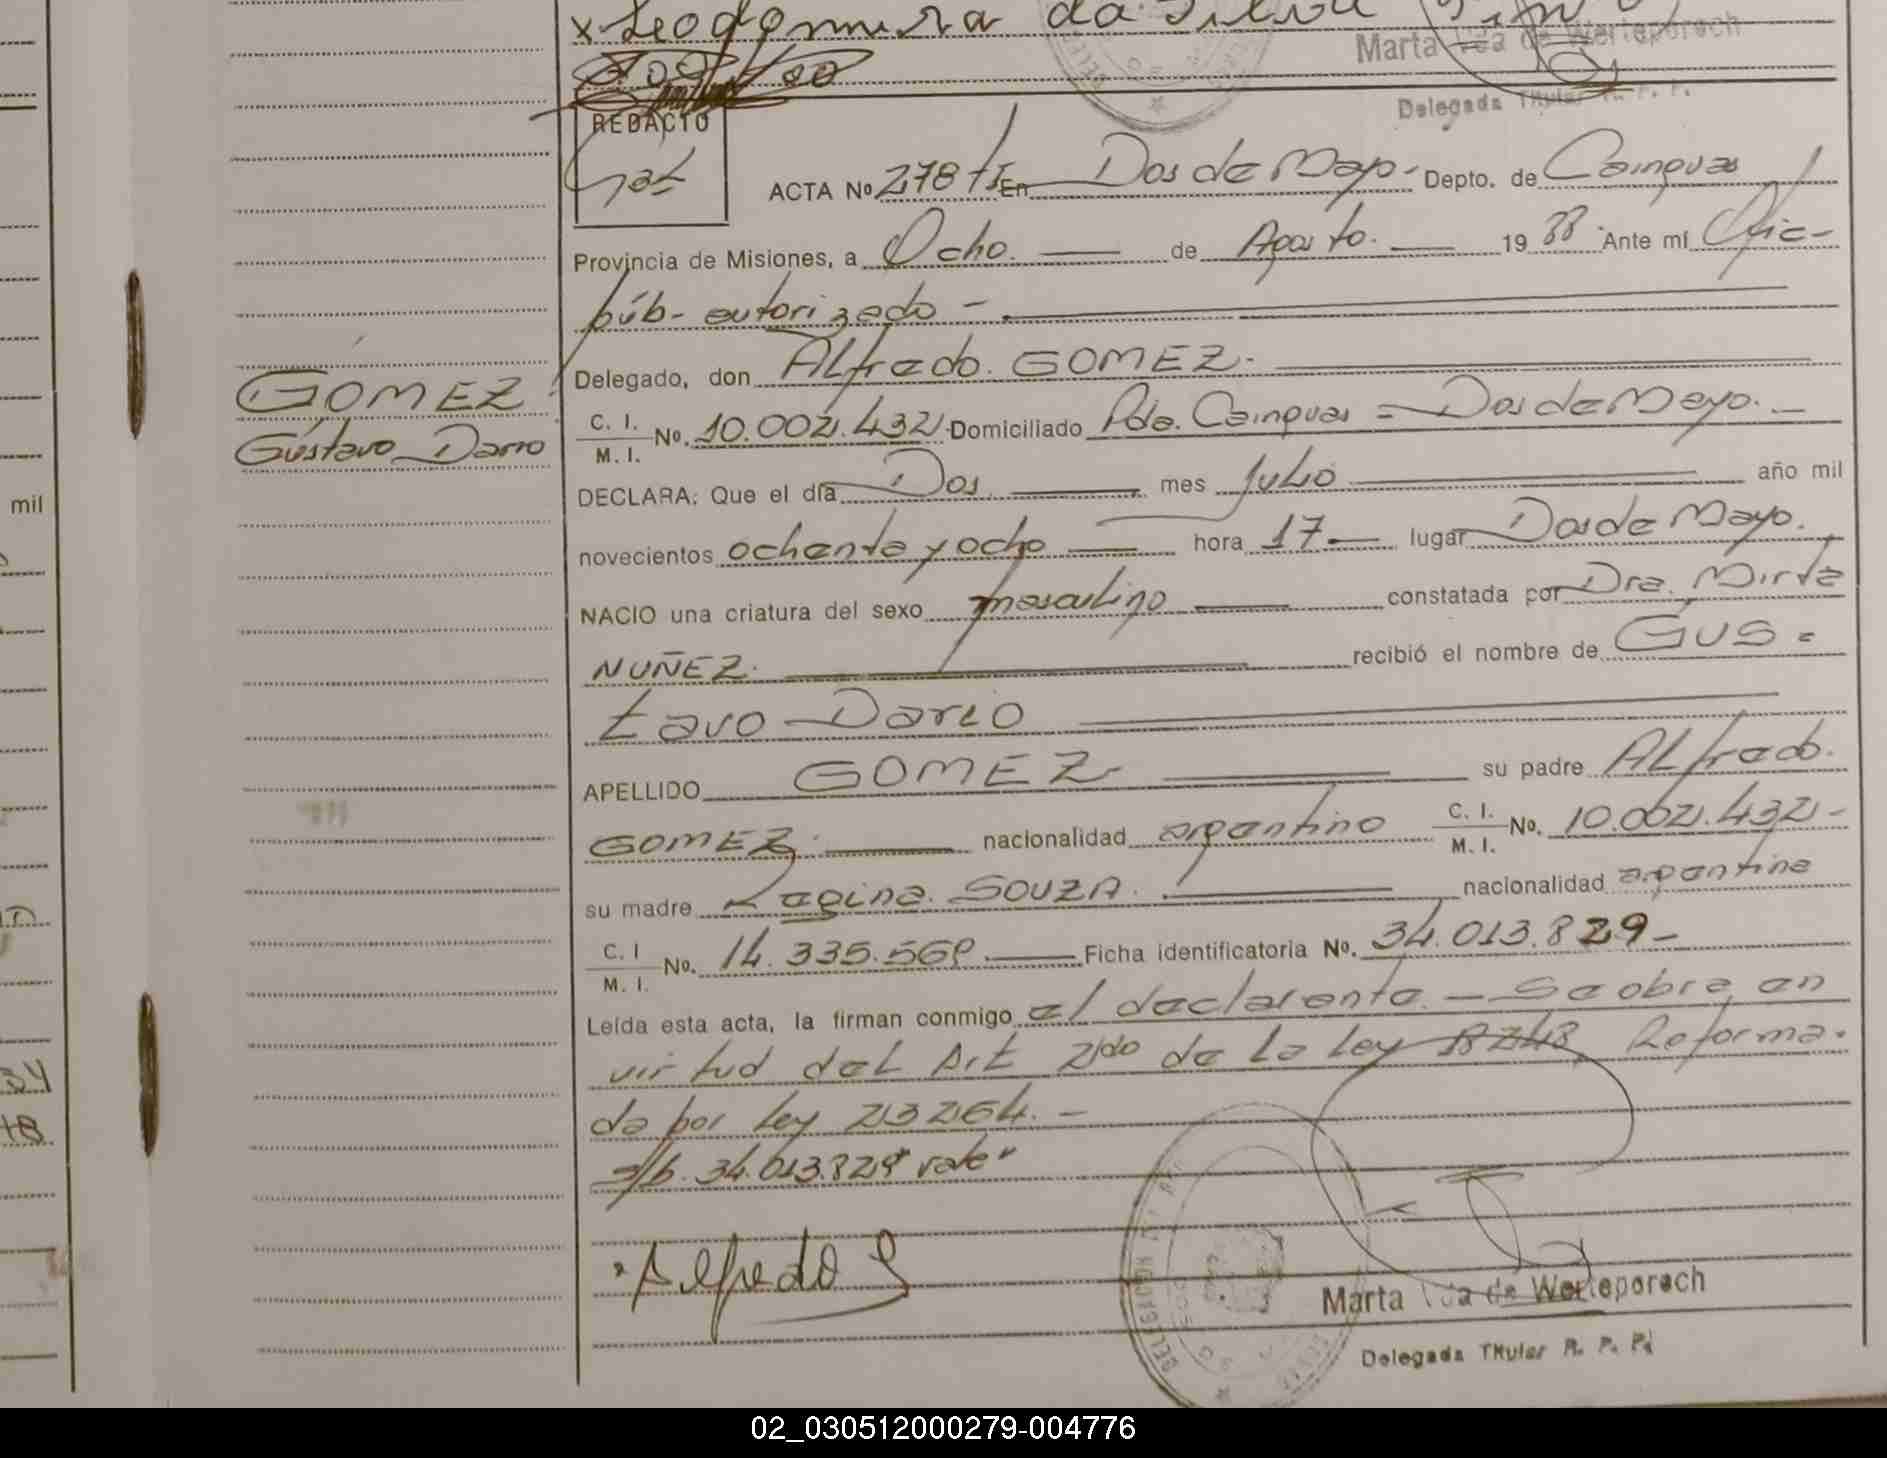 x Leodomira da Silva
Marta Vda de Werleporsch
Delegada Titular R. P. P.
REDACTO
ACTA Nº 278 TI En Dos de Mayo - Depto. de Cainguas
Provincia de Misiones, a Ocho. de Agosto. 19 88 Ante mí Ofic-
púb- autorizado -
GOMEZ
Delegado, don ALfredo. GOMEZ.
Gustavo Dario
C. I. M. I. No. 10.002.432 Domiciliado Pdo. Cainguas = Dos de Mayo. -
DECLARA: Que el día Dos mes Julio año mil
mil
novecientos ochenta y ocho hora 17 - lugar Dos de Mayo.
NACIO una criatura del sexo masculino constatada por Dra. Mirta
NUÑEZ. recibió el nombre de GUS =
tavo Dario
APELLIDO GOMEZ su padre ALfredo.
GOMEZ. nacionalidad argentino C. I. M. I. No. 10.002.432 -
su madre Regina. SOUZA. nacionalidad argentina
C. I M. I. No. 14.335.569 Ficha identificatoria No. 34.013.829 -
Leída esta acta, la firman conmigo el declarante. - Se obra en
virtud del Art 2do de la Ley 18248 Reforma.
34
da por Ley 23264. -
s/b. 34.013.829 "vale"
Alfredo G
Marta Vda de Werleporsch
Delegada Titular R. P. P.
02_030512000279-004776